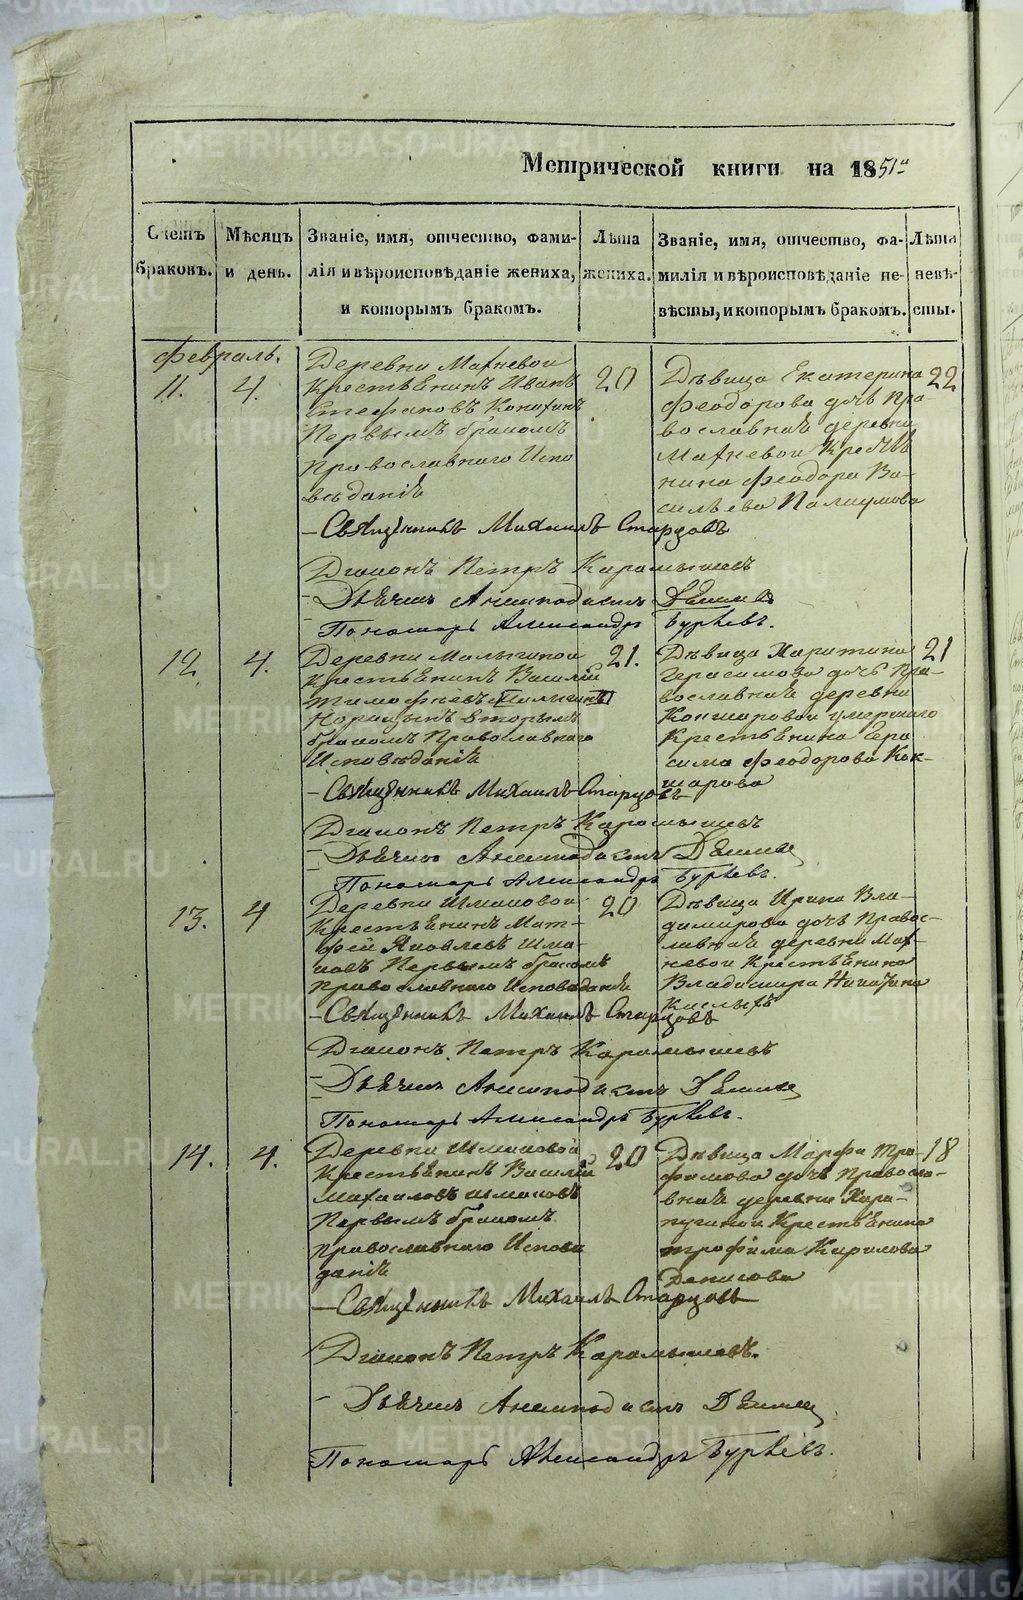 Метрической книги на 1851й
Счетъ браковъ.
Мѣсяцъ и день.
Званіе, имя, отчество, фами-
лія и вѣроисповѣданіе жениха,
и которымъ бракомъ.
Лѣта
жениха.
Званіе, имя, отчество, фа-
милія и вѣроисповѣданіе не-
вѣсты, и которымъ бракомъ.
Лѣта
невѣ-
сты.
Февраль.
11. 4.
Деревни Махневой
Крестьянинъ Иванъ
Стефановъ Конихинъ
Первымъ бракомъ
Православнаго Испо
вѣданія
20
Дѣвица Екатерина
Феодорова дочь Пра-
вославная деревни
Махневой Крестья
нина Феодора Ва-
сильева Палаумова
22
Священникъ Михаилъ Старцовъ
Діаконъ Петръ Карамышевъ
Дьячекъ
Пономарь Александръ Бурѣевъ.
12. 4.
Деревни Малыгиной
Крестьянинъ Василій
Тимофѣевъ
вторымъ
бракомъ Православнаго
Исповѣданія
21.
Дѣвица Харитина
Герасимова дочь Пра-
вославная деревни
Кокшаровой умершаго
Крестьянина Гера
сима Феодорова Кок-
шарова
21
Священникъ Михаилъ Старцовъ
Діаконъ Петръ Карамышевъ
Дьячекъ
Пономарь Александръ Бурѣевъ.
13. 4
Деревни Шмаковой
Крестьянинъ Мат-
фей Яковлевъ Шма
ковъ Первымъ бракомъ
Православнаго Исповѣданія
20
Дѣвица Ирина Вла-
димирова дочь Правос-
лавная деревни Мах-
невой Крестьянина
Владимира Никитина
Кислыхъ
Священникъ Михаилъ Старцовъ
Діаконъ Петръ Карамышевъ
Дьячекъ
Пономарь Александръ Бурѣевъ.
14. 4.
Деревни Шмаковой
Крестьянинъ Василій
Михаиловъ Шмаковъ
Первымъ бракомъ
Православнаго Исповѣ
данія
20
Дѣвица Марфа Тро-
фимова дочь Правосла-
вная деревни Кара-
пугиной Крестьянина
Трофима Кирилова
Денисова
18
Священникъ Михаилъ Старцовъ
Діаконъ Петръ Карамышевъ.
Дьячекъ
Пономарь Александръ Бурѣевъ.
METRIKI.GASO-URAL.RU